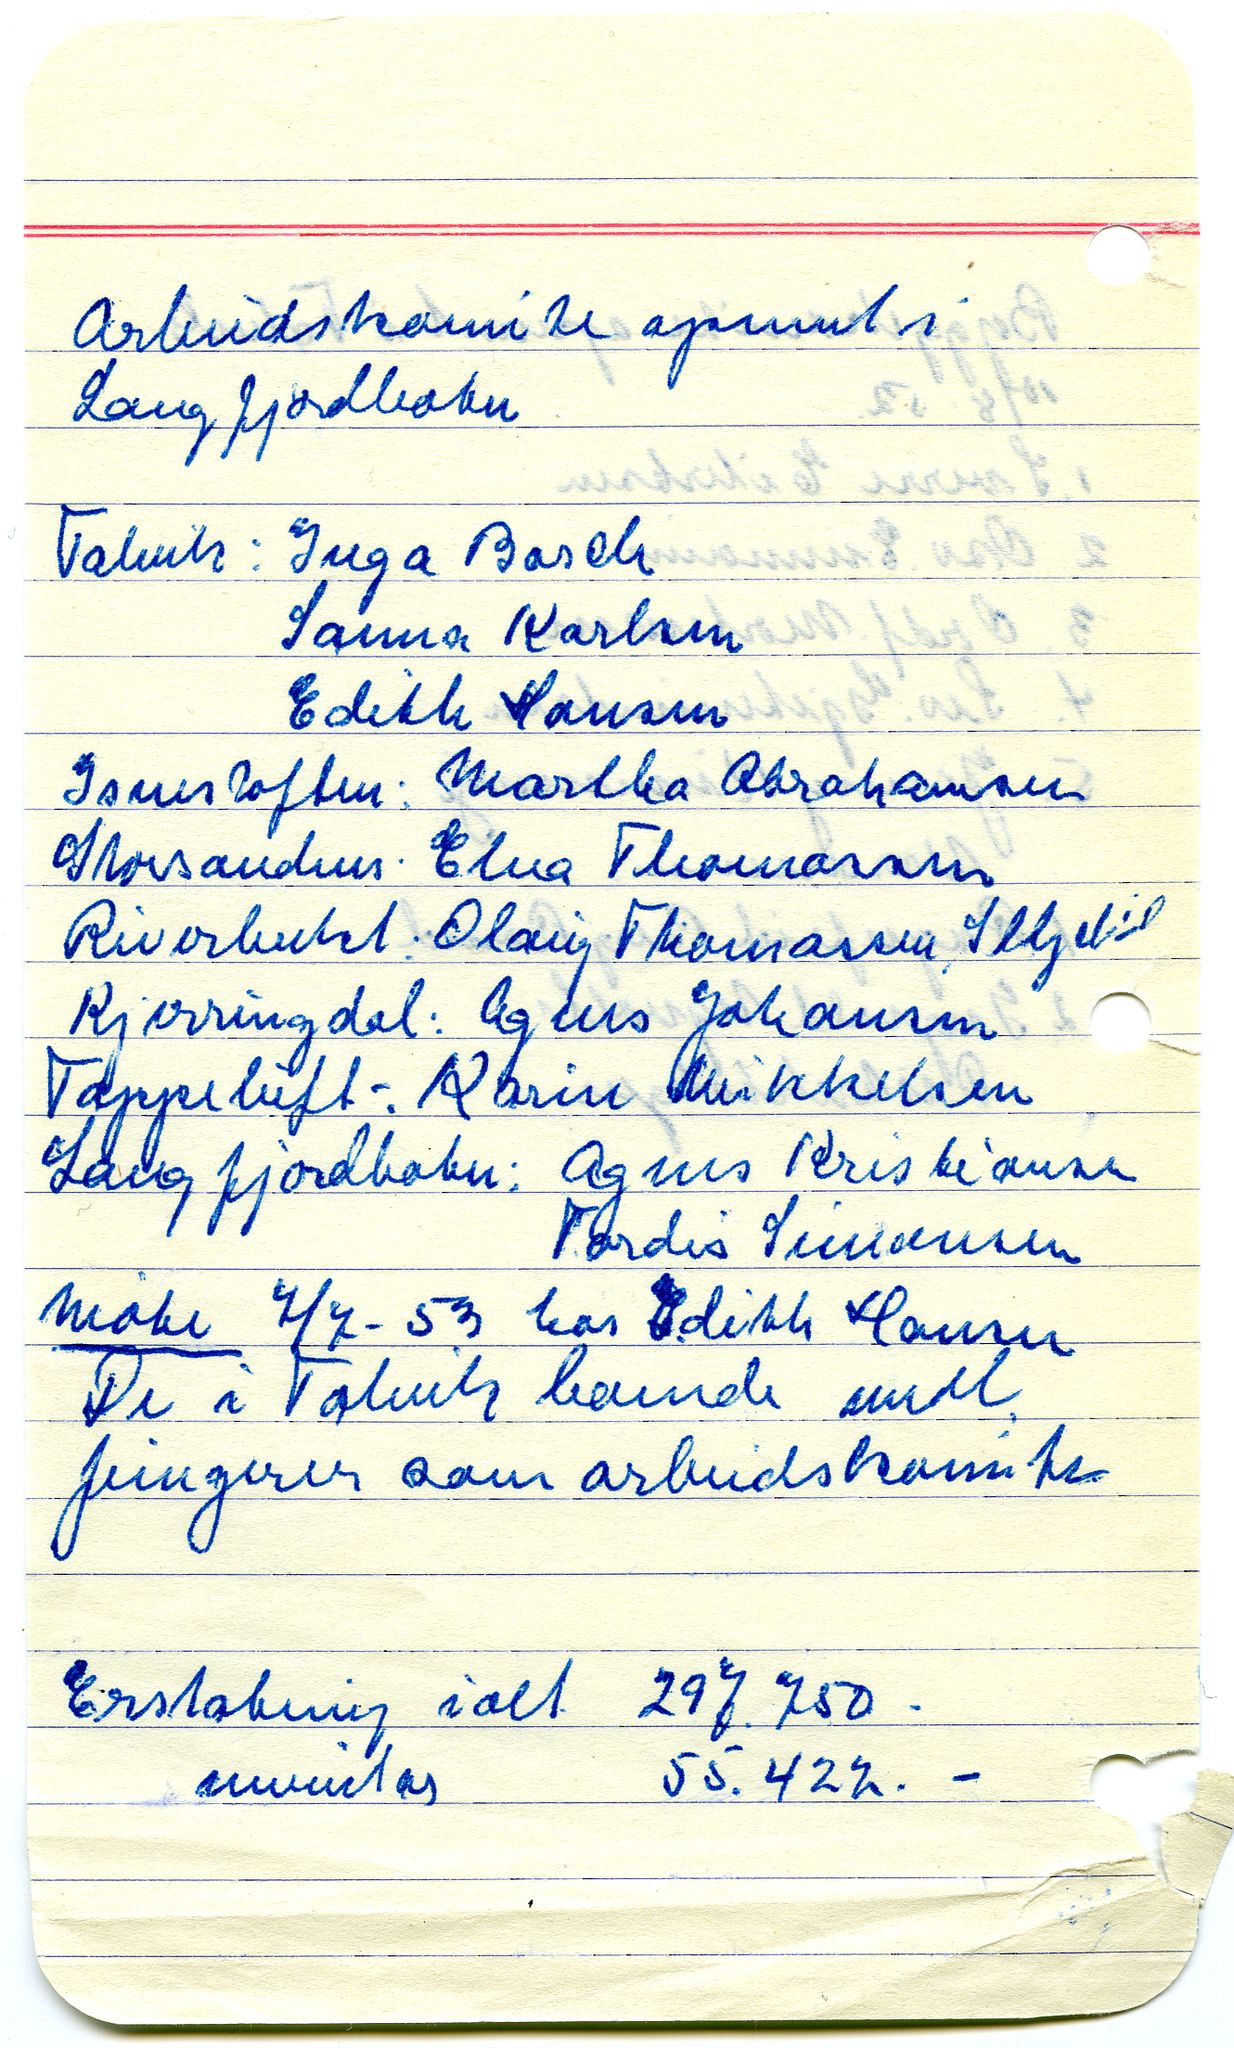 Arbeidskomite opnevnt i
Langfjordbotn
Talvik: Inga Bosch
Sanna Karlsen
Edith Hansen
Isnestoften: Martha Abrahamsen
Storsandnes: Elna Thomassen
Riverbukt: Olaug Thomassen,
Kjerringdal: Agnes Johansen
Tappeluft: Karin Mikkelsen
Langfjordbotn: Agnes Kristiansen
Tordis Simonsen
Møte 7/7-53 hos Edith Hansen
De i Talvik boende medl.
fungerer som arbeidskomite
Erstatning ialt 297.750.
55.422.-